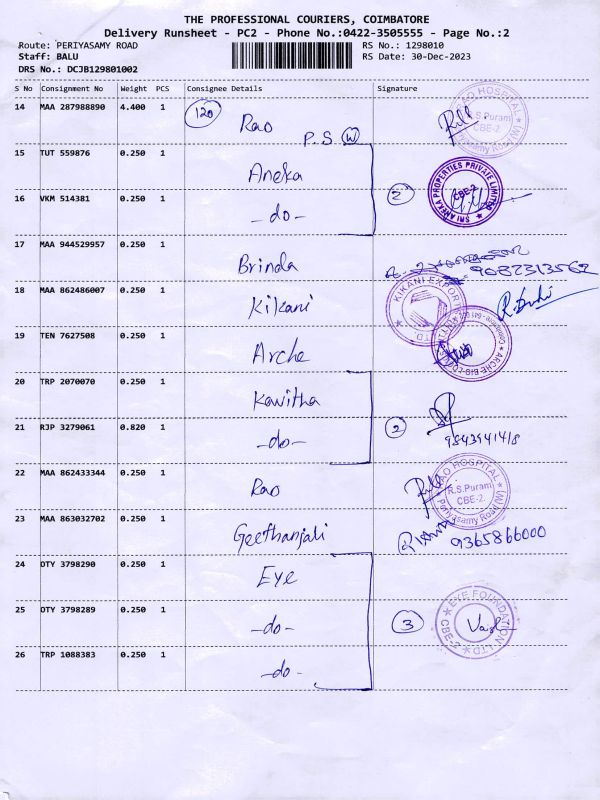 THE PROFESSIONAL COURIERS, COIMBATORE
Delivery Runsheet - PC2 - Phone No.:0422-3505555 - Page No.:2
Route: PERIYASAMY ROAD RS No.: 1298010
Staff: BALU RS Date: 30-Dec-2023
DRS No.: DCJB129801002
S No Consignment No Weight PCS Consignee Details Signature
14 MAA 287988890 4.400 1 120 Rao RAO HOSPITAL R.S.Puram CBE-2 Periyasamy Road (W)
P.S. W
15 TUT 559876 0.250 1 Aneka
16 VKM 514381 0.250 1 -do- 2 SRI ANEKA PROPERTIES PRIVATE LIMITED CBE-2
17 MAA 944529957 0.250 1 Brinda 9082313562
18 MAA 862486007 0.250 1 Kikani KIKANI EXPORTS LTD
19 TEN 7627508 0.250 1 Arche Coimbatore ARCHE BIO
20 TRP 2070070 0.250 1 Kavitha
21 RJP 3279061 0.820 1 -do- 2 9843941418
22 MAA 862433344 0.250 1 Rao RAO HOSPITAL R.S.Puram CBE-2. Periyasamy Road (W)
23 MAA 863032702 0.250 1 Geethanjali 9365866000
24 OTY 3798290 0.250 1 Eye
25 OTY 3798289 0.250 1 -do- 3 EYE FOUNDATION LTD CBE-2
26 TRP 1088383 0.250 1 -do-